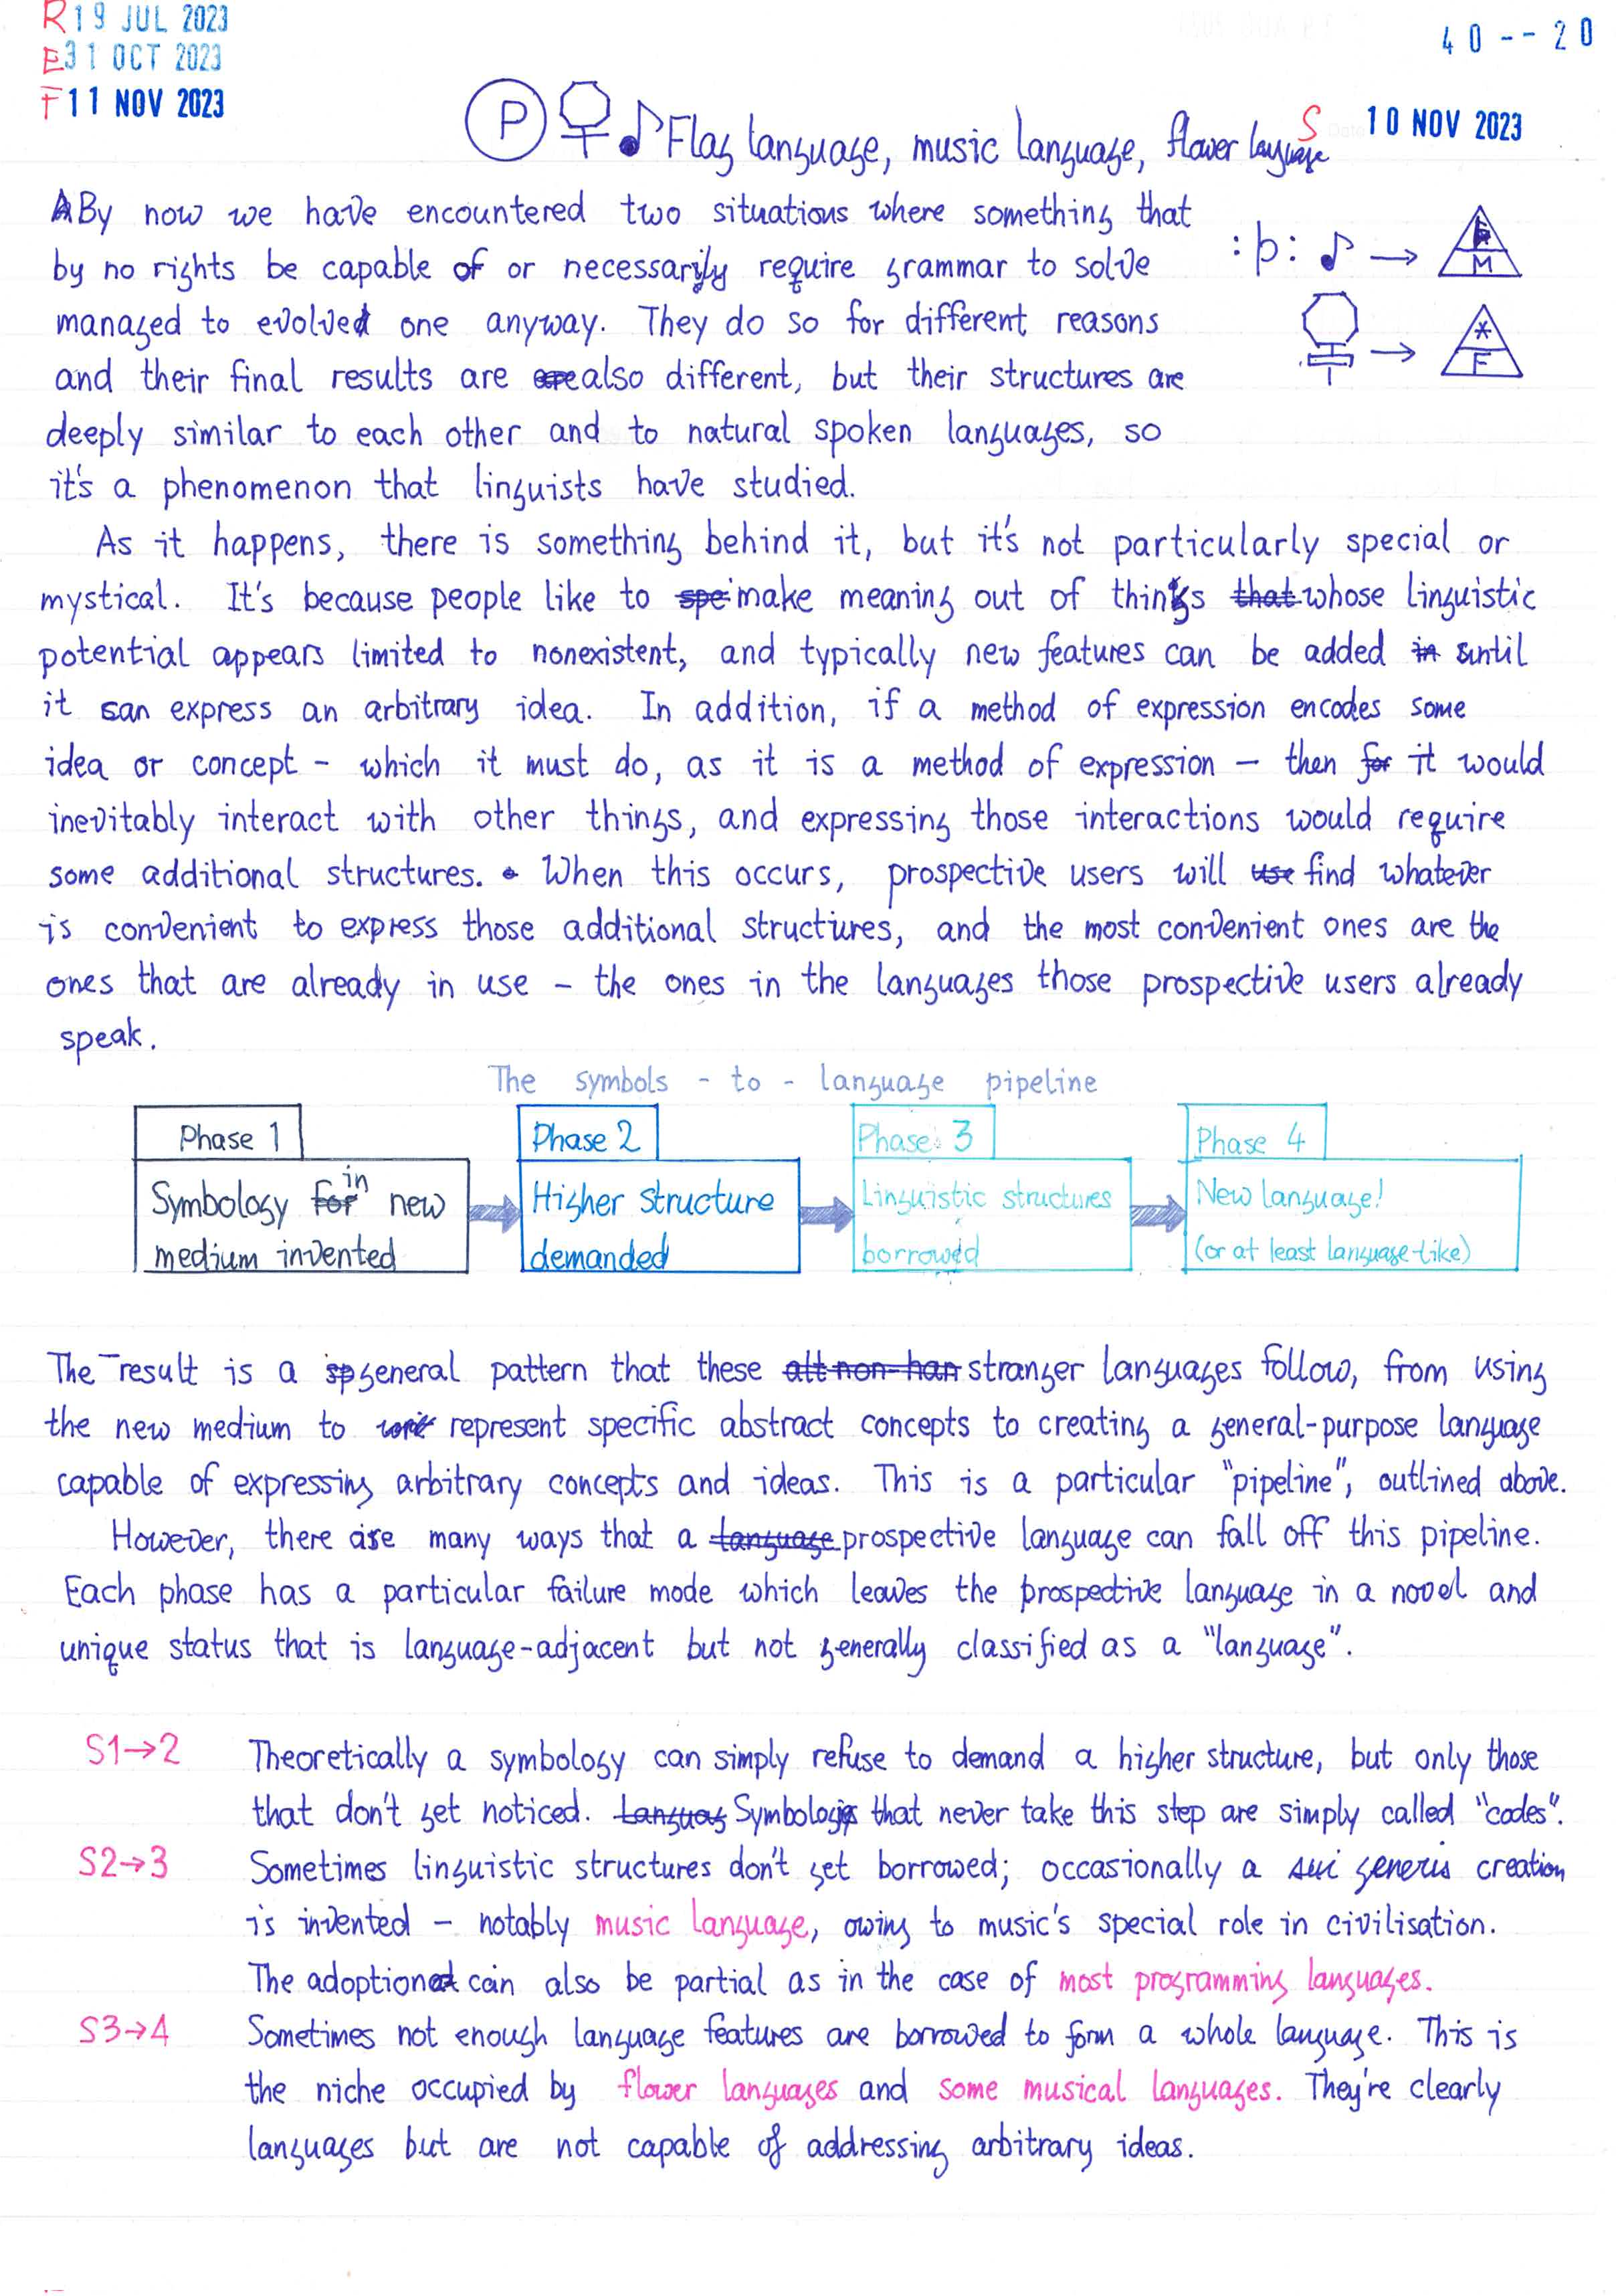 R 19 JUL 2023
E 31 OCT 2023
F 11 NOV 2023
40--20
P ♪ Flag language, music language, flower language
S 10 NOV 2023
By now we have encountered two situations where something that
by no rights be capable of or necessarily require grammar to solve
managed to evolved one anyway. They do so for different reasons
and their final results are also different, but their structures are
deeply similar to each other and to natural spoken languages, so
it's a phenomenon that linguists have studied.
:p: ♪ → M
→ * F
As it happens, there is something behind it, but it's not particularly special or
mystical. It's because people like to spe make meaning out of things that whose linguistic
potential appears limited to nonexistent, and typically new features can be added in until
it can express an arbitrary idea. In addition, if a method of expression encodes some
idea or concept – which it must do, as it is a method of expression – then for it would
inevitably interact with other things, and expressing those interactions would require
some additional structures. When this occurs, prospective users will use find whatever
is convenient to express those additional structures, and the most convenient ones are the
ones that are already in use – the ones in the languages those prospective users already
speak.
The symbols - to - language pipeline
Phase 1
Symbology for in new
medium invented
Phase 2
Higher structure
demanded
Phase 3
Linguistic structures
borrowed
Phase 4
New language!
(or at least language-like)
The result is a general pattern that these all non-han stranger languages follow, from using
the new medium to represent specific abstract concepts to creating a general-purpose language
capable of expressing arbitrary concepts and ideas. This is a particular "pipeline", outlined above.
However, there are many ways that a language prospective language can fall off this pipeline.
Each phase has a particular failure mode which leaves the prospective language in a novel and
unique status that is language-adjacent but not generally classified as a "language".
S1→2 Theoretically a symbology can simply refuse to demand a higher structure, but only those
that don't get noticed. Languag Symbologies that never take this step are simply called "codes".
S2→3 Sometimes linguistic structures don't get borrowed; occasionally a sui generis creation
is invented – notably music language, owing to music's special role in civilisation.
The adoption can also be partial as in the case of most programming languages.
S3→4 Sometimes not enough language features are borrowed to form a whole language. This is
the niche occupied by flower languages and some musical languages. They're clearly
languages but are not capable of addressing arbitrary ideas.